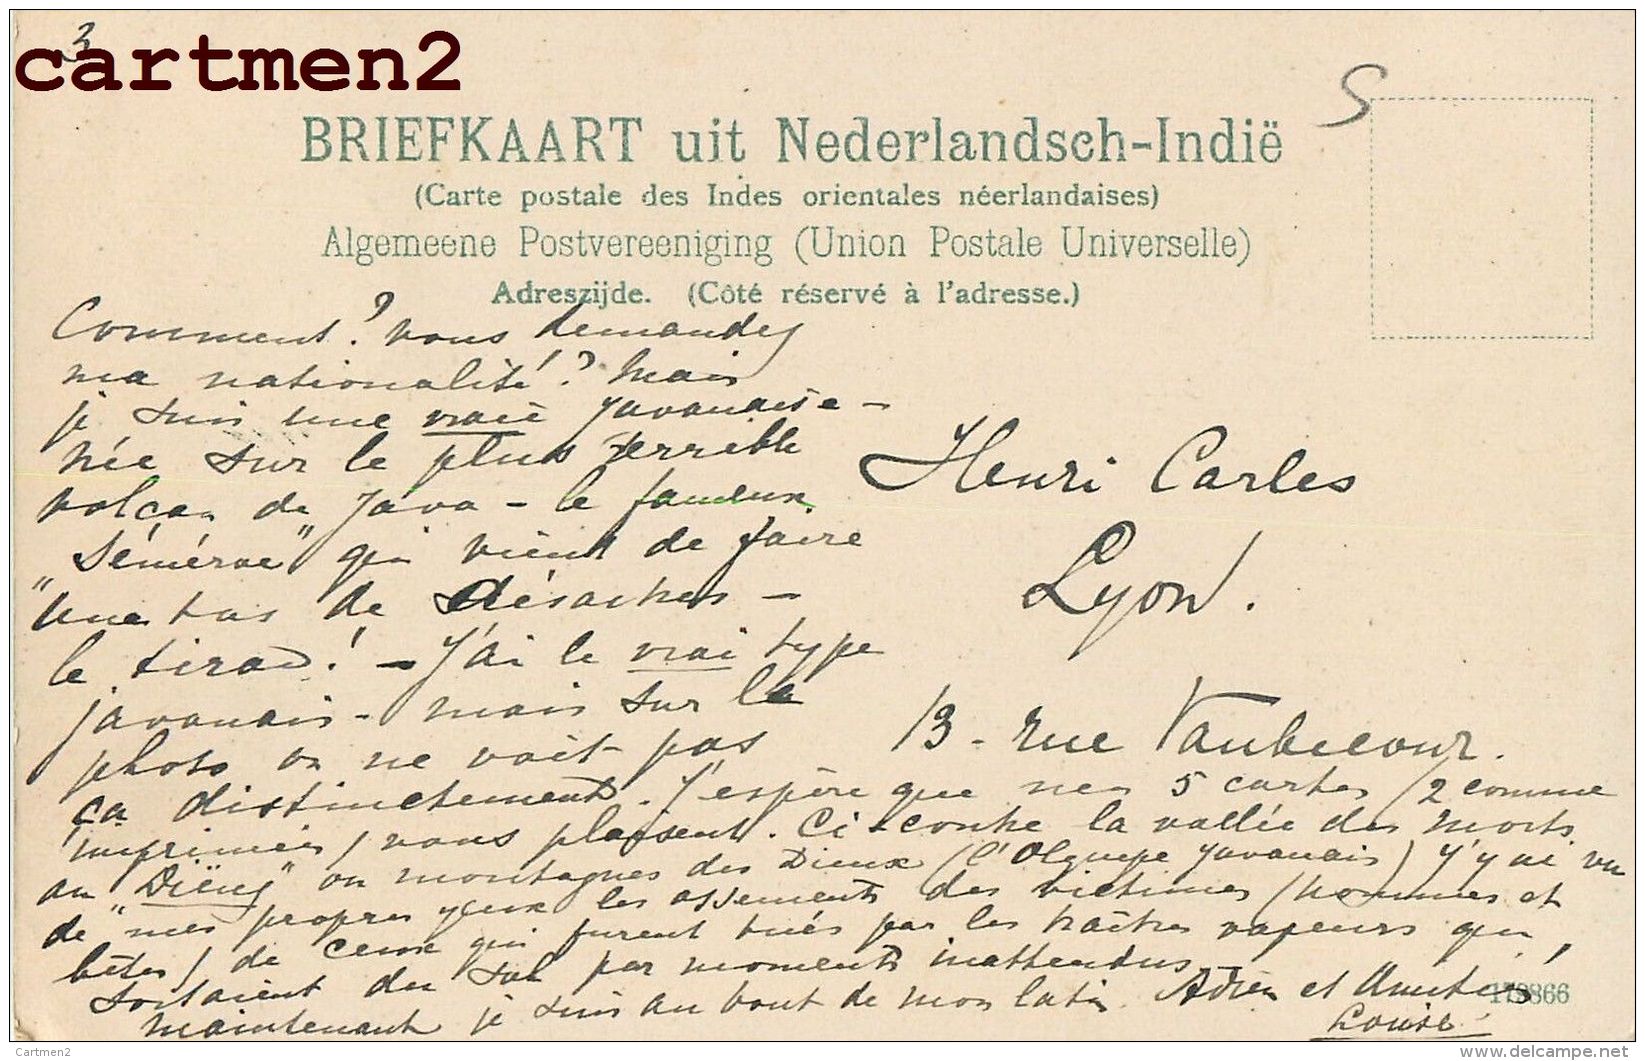 3
cartmen2
S
BRIEFKAART uit Nederlandsch-Indië
(Carte postale des Indes orientales néerlandaises)
Algemeene Postvereeniging (Union Postale Universelle)
Adreszijde. (Côté réservé à l'adresse.)
Comment? vous demandez
ma nationalité!? Mais
je suis une vraie javanaise -
née sur le plus terrible
volcan de Java - le fameux
"Séméroe" qui vient de faire
une tas de désastres -
le tirad! - J'ai le vrai type
javanais - mais sur la
photo on ne voit pas
ça distinctement. J'espère que mes 5 cartes (2 comme
imprimées) vous plaisent. Ci-contre la vallée des morts
au "Diëng" ou montagnes des Dieux (l'Olympe javanais) J'y ai vu
de mes propres yeux les ossements des victimes (hommes et
bêtes) de ceux qui furent tués par les traîtres vapeurs qui,
sortaient du sol par moments inattendus
maintenant je suis au bout de mon latin. Adieu et Amitiés
Louise
Henri Carles
Lyon.
13 - rue Vaubecour.
179866
Cartmen2
www.delcampe.net